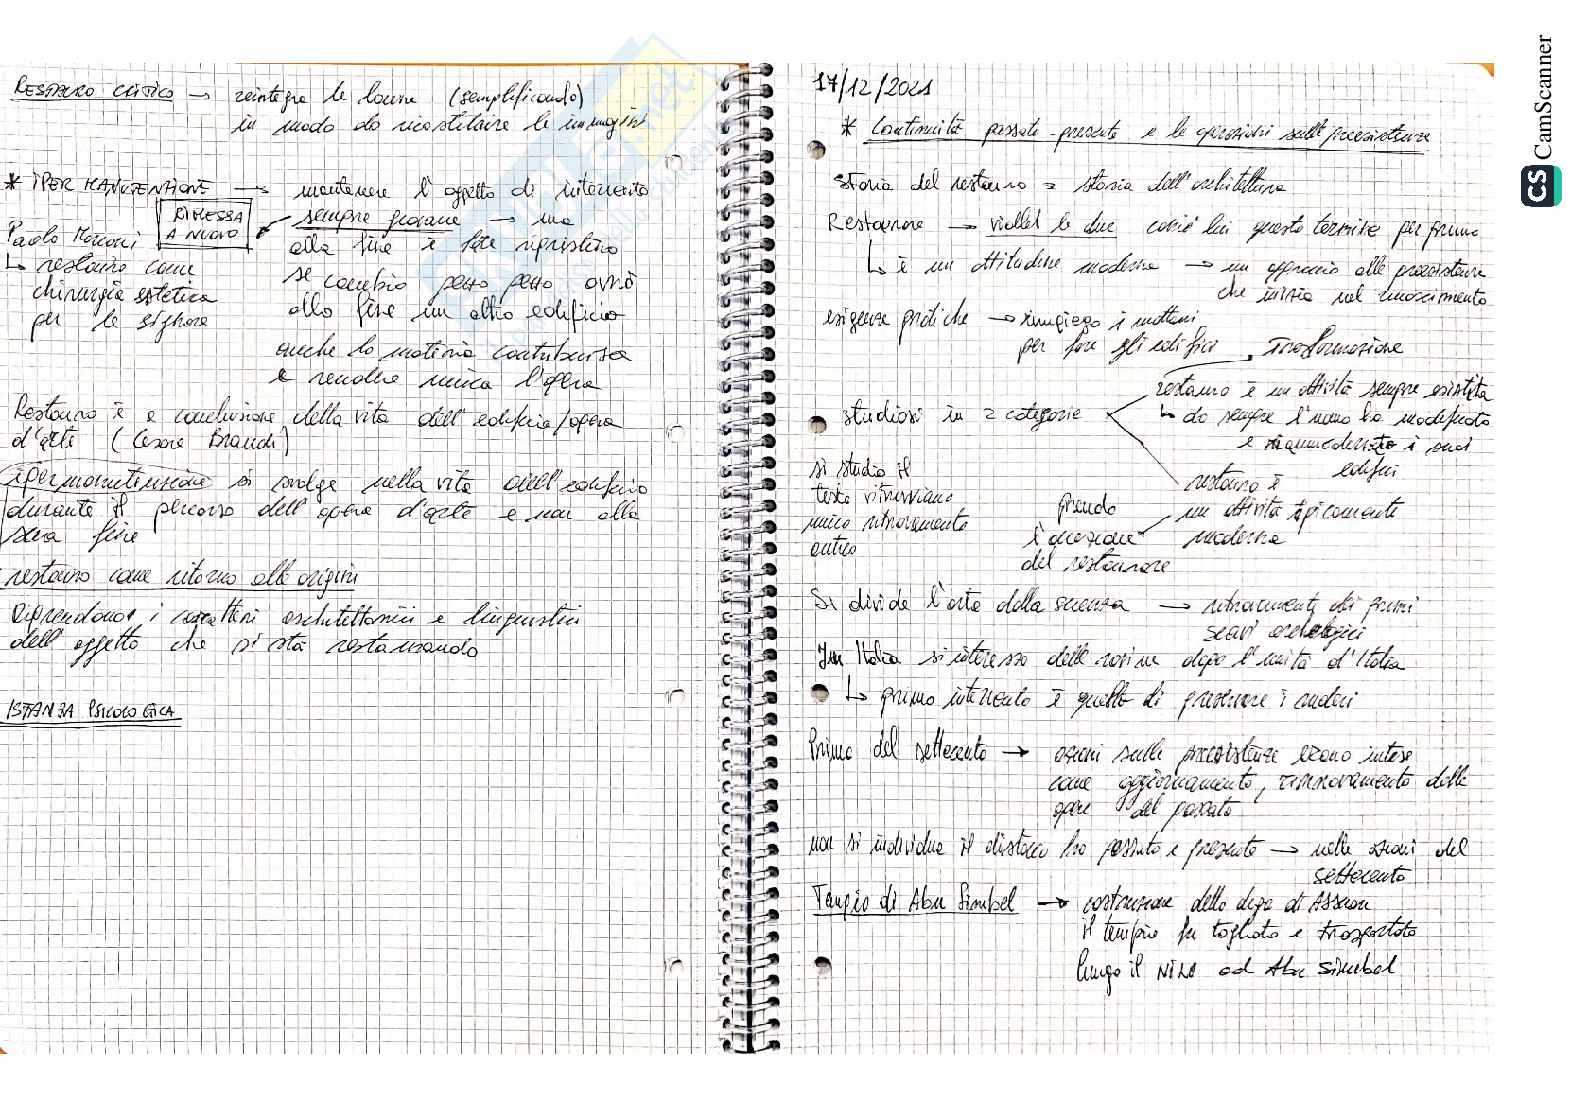 RESTAURO CRITICO → reintegra le lacune (semplificando)
in modo da ricostituire le immagini
* IPER MANUTENZIONE → mantenere l'oggetto di intervento
RIMESSA
A NUOVO
sempre giovane → ma
Paolo Marconi
alla fine è fare ripristino
↳ restauro come
se cambio pezzo pezzo avrò
chirurgia estetica
alla fine un altro edificio
per le signore
anche la materia contribuisce
a rendere unica l'opera
Restauro è a conclusione della vita dell'edificio/opera
d'arte (Cesare Brandi)
ipermanutenzione si svolge nella vita dell'edificio
durante il percorso dell'opera d'arte e non alla
sua fine
restauro come ritorno alle origini
riprendono i caratteri architettonici e linguistici
dell'oggetto che si sta restaurando
ISTANZA PSICOLOGICA
17/12/2021
* Continuità passato-presente e le operazioni sulle preesistenze
storia del restauro = storia dell'architettura
Restaurare → viollet le duc coniò lui questo termine per primo
↳ è un attitudine moderna → un approccio alle preesistenze
che inizia nel rinascimento
esigenze pratiche → rimpiego i mattoni
per fare gli edifici
trasformazione
restauro è un attività sempre esistita
studiosi in 2 categorie
↳ da sempre l'uomo ha modificato
e i suoi
edifici
si studia il
testo vitruviano
unico ritrovamento
antico
restauro è
un attività tipicamente
moderna
quando
l'operazione
del restaurare
Si divide l'arte dalla scienza → ritrovamenti dei primi
scavi archeologici
In Italia si interessa delle rovine dopo l'unità d'Italia
↳ primo intervento è quello di preservare i ruderi
Prima del settecento → azioni sulle preesistenze erano intese
come aggiornamento, rinnovamento delle
opere del passato
non si individua il distacco tra passato e presente → nelle azioni del
settecento
Tempio di Abu Simbel → costruzione della diga di Assuan
il tempio fu tagliato e trasportato
lungo il NILO ad Abu Simbel
CS CamScanner